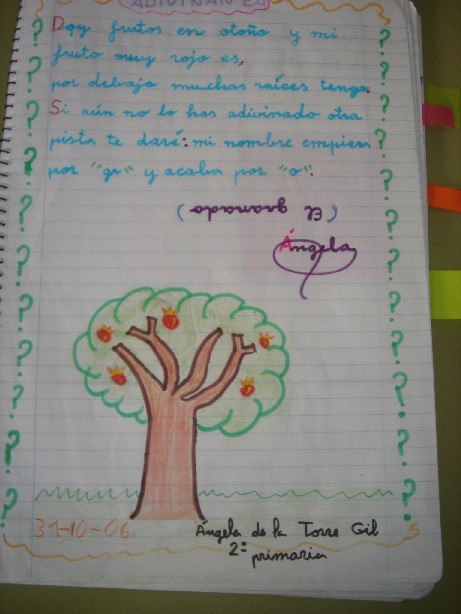 ADIVINANZA
Doy frutos en otoño y mi
fruto muy rojo es,
por debajo muchas raíces tengo.
Si aún no lo has adivinado otra
pista te daré: mi nombre empieza
por "gr" y acaba por "o".
(El granado)
Ángela
31-10-06.
Ángela de la Torre Gil
2º primaria